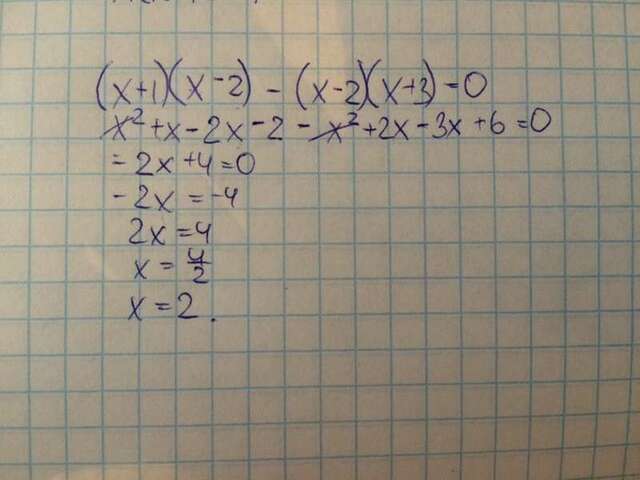 (x+1)(x-2) - (x-2)(x+3)=0
x²+x-2x-2-x²+2x-3x+6=0
-2x+4=0
-2x=-4
2x=4
x=4/2
x=2.